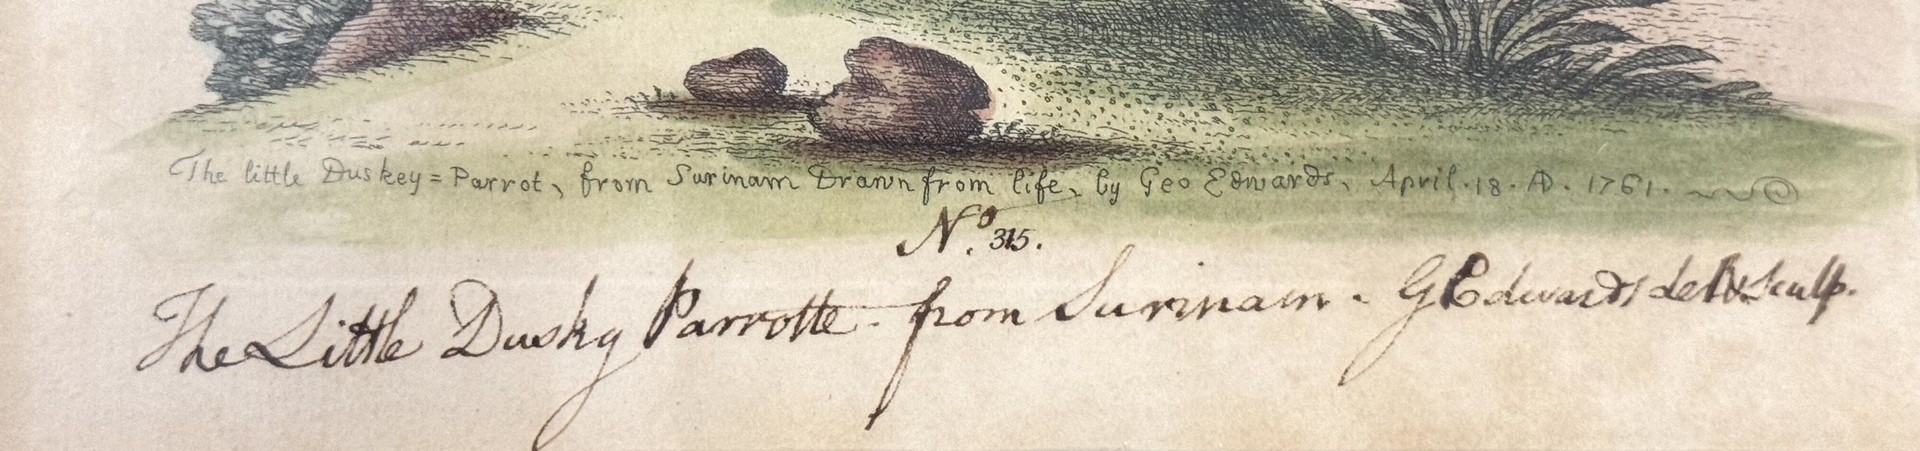 The little Duskey=Parrot, from Surinam Drawn from life, by Geo Edwards, April.18.AD.1761.
No. 315.
The Little Dusky Parrotte - from Surinam. G Edwards del & Sculp.